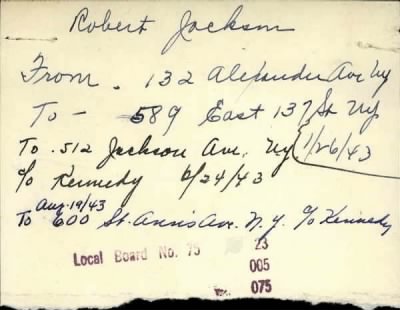 Robert Jackson
From. 132 Alexander Ave Ny
To - 589 East 137 St Ny
To. 512 Jackson Ave. Ny 1/26/43
c/o Kennedy 6/24/43
Aug. 19/43
To 600 St. Anns Ave. N.Y. c/o Kennedy
Local Board No. 75 23
005
075